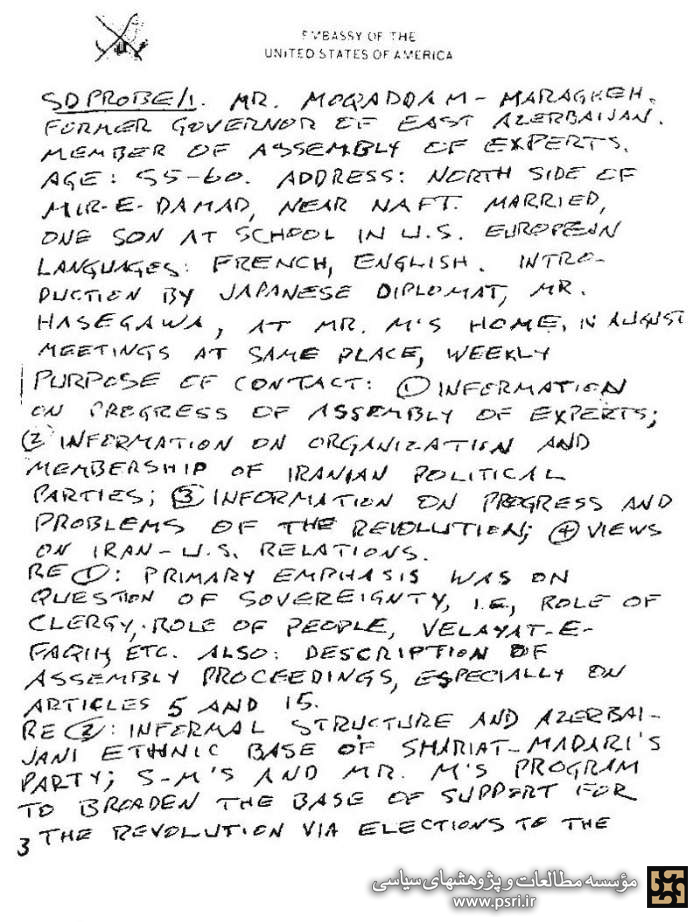 EMBASSY OF THE
UNITED STATES OF AMERICA
SDPROBE/1. MR. MOQADDAM-MARAGHEH.
FORMER GOVERNOR OF EAST AZERBAIJAN.
MEMBER OF ASSEMBLY OF EXPERTS.
AGE: 55-60. ADDRESS: NORTH SIDE OF
MIR-E-DAMAD, NEAR NAFT. MARRIED,
ONE SON AT SCHOOL IN U.S. EUROPEAN
LANGUAGES: FRENCH, ENGLISH. INTRO-
DUCTION BY JAPANESE DIPLOMAT, MR.
HASEGAWA, AT MR. M'S HOME, IN AUGUST
MEETINGS AT SAME PLACE, WEEKLY
PURPOSE OF CONTACT: ① INFORMATION
ON PROGRESS OF ASSEMBLY OF EXPERTS;
② INFORMATION ON ORGANIZATION AND
MEMBERSHIP OF IRANIAN POLITICAL
PARTIES; ③ INFORMATION ON PROGRESS AND
PROBLEMS OF THE REVOLUTION; ④ VIEWS
ON IRAN-U.S. RELATIONS.
RE ①: PRIMARY EMPHASIS WAS ON
QUESTION OF SOVEREIGNTY, I.E., ROLE OF
CLERGY, ROLE OF PEOPLE, VELAYAT-E-
FAQIH, ETC. ALSO: DESCRIPTION OF
ASSEMBLY PROCEEDINGS, ESPECIALLY ON
ARTICLES 5 AND 15.
RE ②: INFORMAL STRUCTURE AND AZERBAI-
JANI ETHNIC BASE OF SHARIAT-MADARI'S
PARTY; S-M'S AND MR. M'S PROGRAM
TO BROADEN THE BASE OF SUPPORT FOR
3 THE REVOLUTION VIA ELECTIONS TO THE
مؤسسه مطالعات و پژوهشهای سیاسی
www.psri.ir